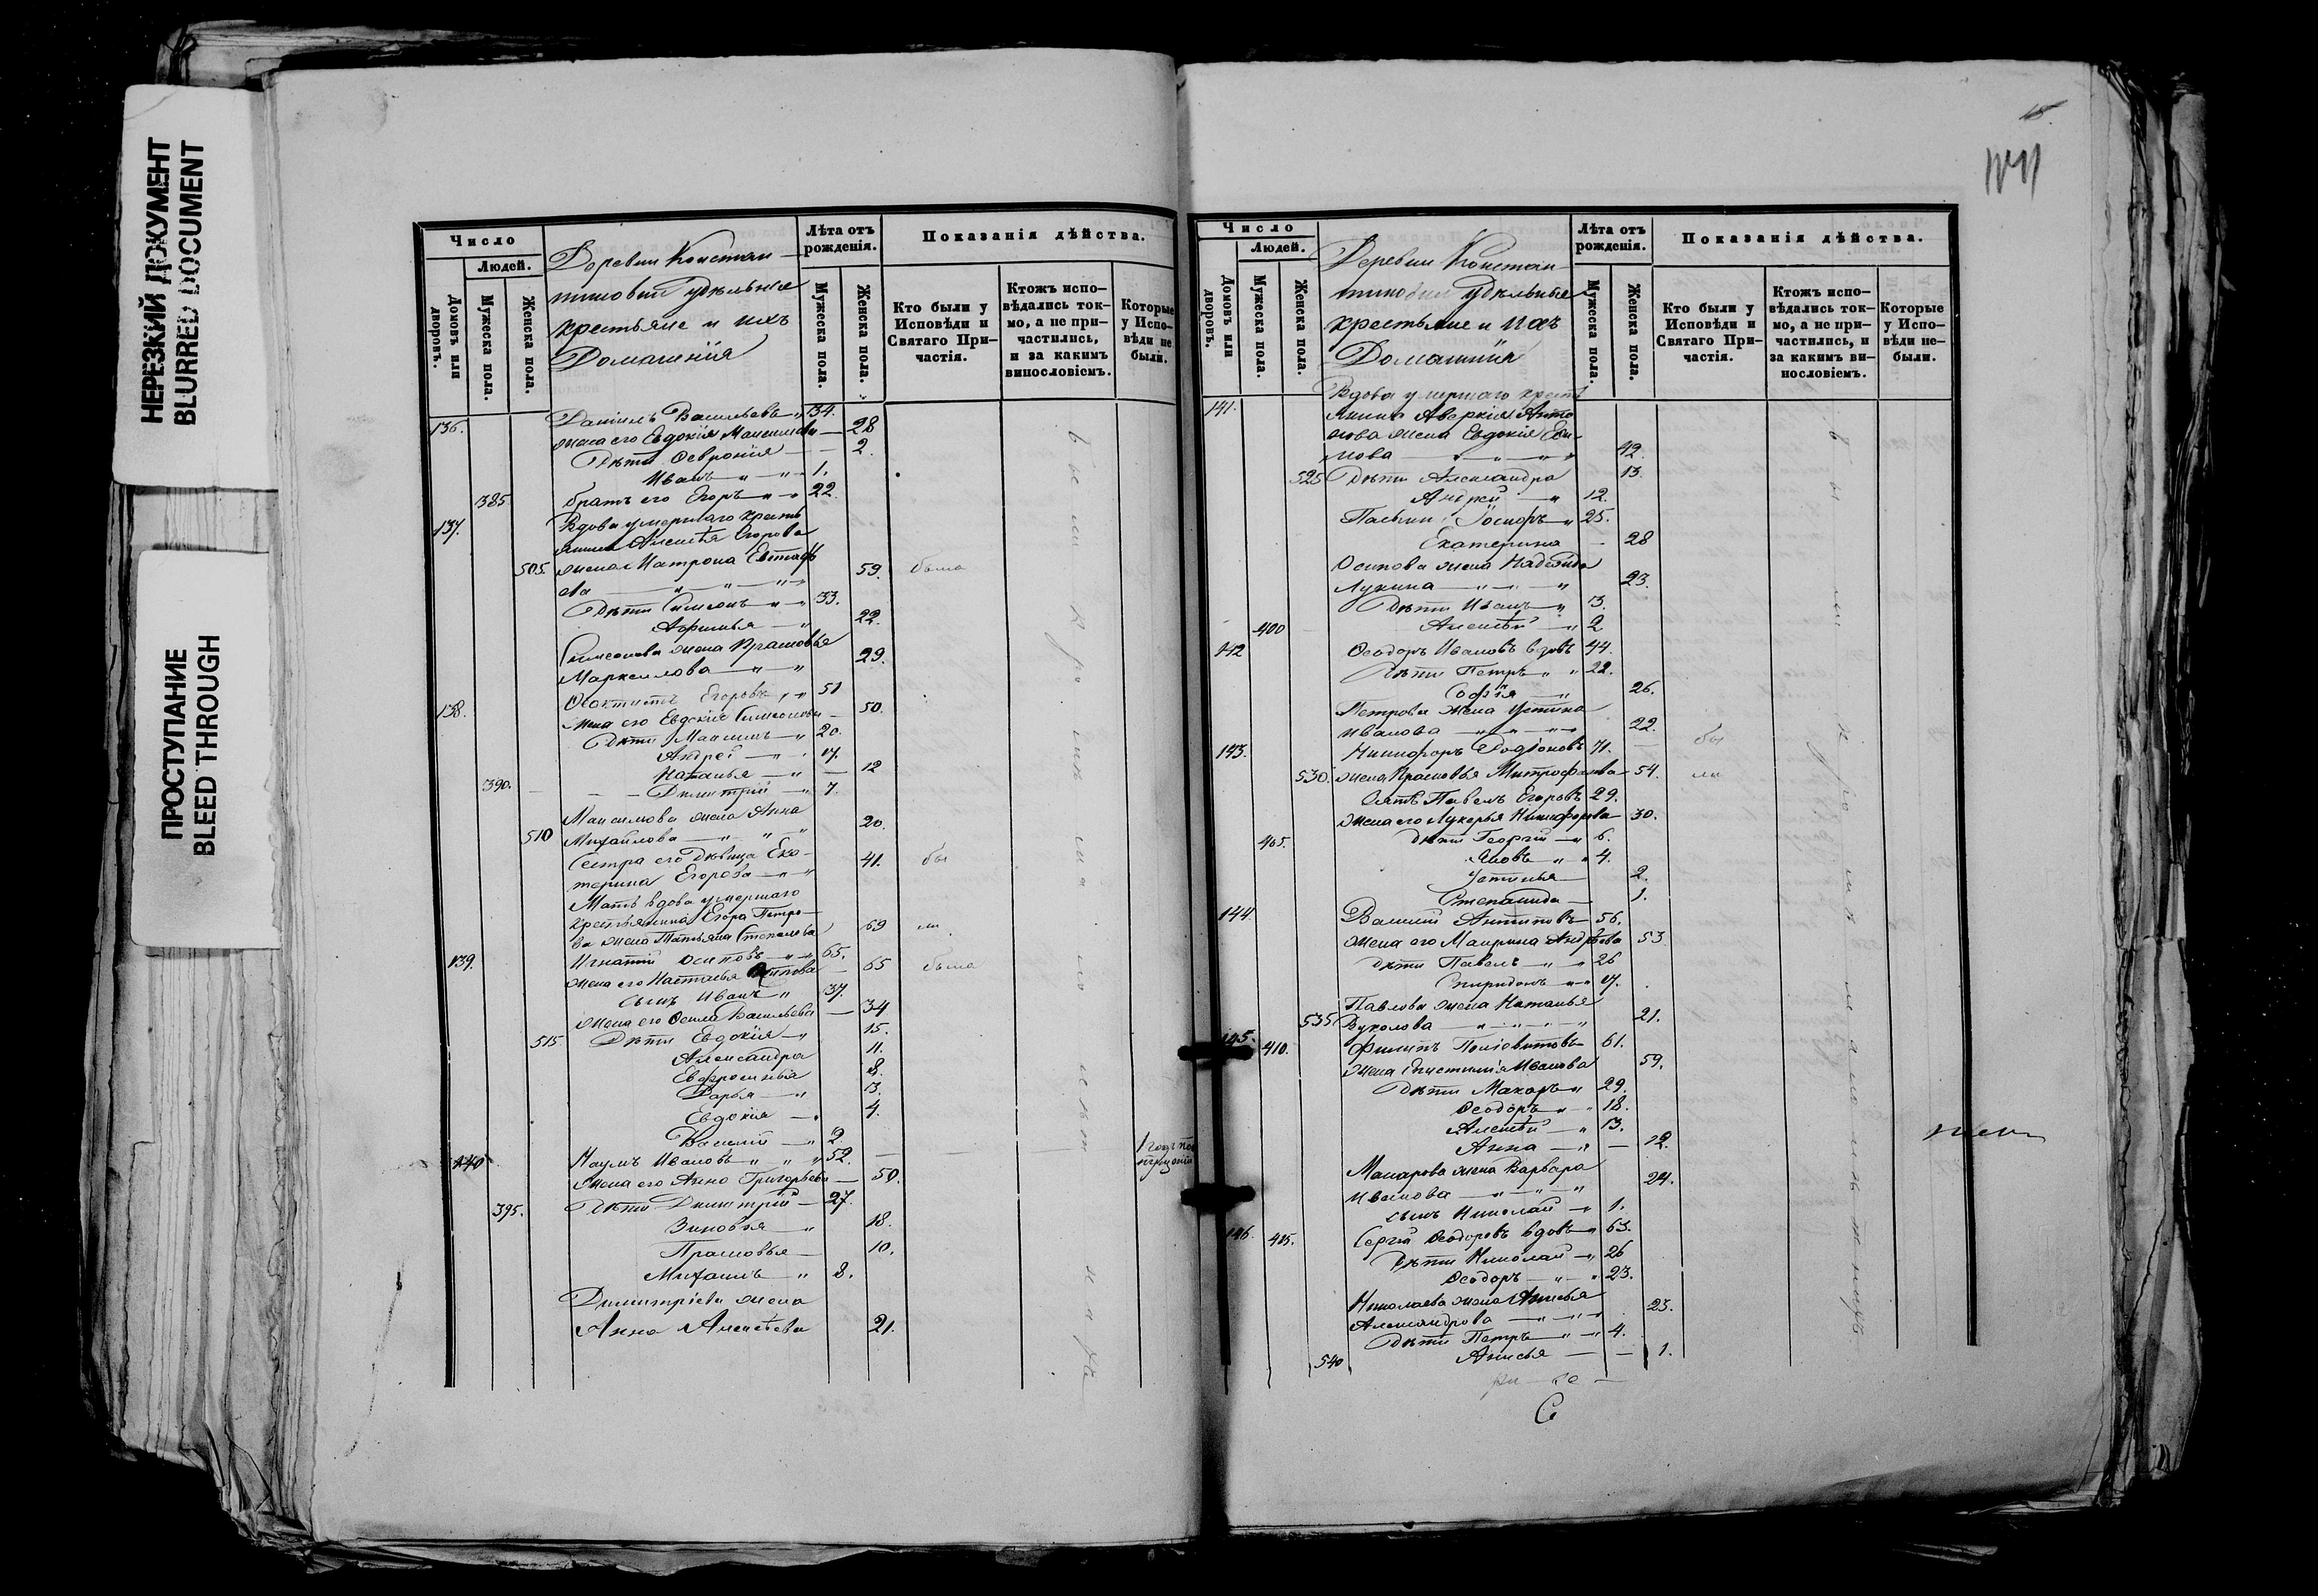 НЕРЕЗКИЙ ДОКУМЕНТ
BLURRED DOCUMENT
ПРОСТУПАНИЕ
BLEED THROUGH
Число
Людей.
Домовъ или дворовъ.
Мужеска пола.
Женска пола.
Деревни Констан-
тиновки Удѣльные
крестьяне и ихъ
Домашнія
Лѣта отъ рожденія.
Мужеска пола.
Женска пола.
Показанія дѣйства.
Кто были у Исповѣди и Святаго При-частія.
Ктожъ испо-вѣдались ток-мо, а не при-частились, и за какимъ винословіемъ.
Которые у Испо-вѣди не были.
136. Даніилъ Васильевъ 34.
жена его Евдокія Максимова 28
Дѣти Февронія 2.
Иванъ 1.
385. братъ его Егоръ 22.
137. Вдова умершаго кресть
янина Алексѣя Егорова
505. жена Матрона Евстафь 59. была
ева
Дѣти Симеонъ 33.
Афимья 22.
Симеонова жена Прасковья
Маркелова 29.
138. Феоктистъ Егоровъ 51
жена его Евдокія Симеонова 50.
Дѣти Максимъ 20.
Андрей 17.
Наталья 12
390. Димитрій 7.
Максимова жена Анна
510 Михайлова 20.
Сестра его Дѣвица Ека-
терина Егорова 41. бы
Мать вдова умершаго
крестьянина Егора Петро-
ва жена Татьяна Степанова 69 ли
139. Игнатій Осиповъ 65.
жена его Настасья 65 была
сынъ Иванъ 37.
жена его Васильева 34
515 Дѣти Евдокія 15.
Александра 11.
Евфросинья 8.
Дарья
Евдокія 4.
Василій 2.
140 Наумъ Ивановъ 52.
жена его Анна Григорьева 50.
395. Дѣти Димитрій 27.
Зиновья 18.
Прасковья 10.
Михаилъ 8.
Димитріева жена
Анна Алексѣева 21.
Число
Людей.
Домовъ или дворовъ.
Мужеска пола.
Женска пола.
Деревни Констан-
тиновки Удѣльные
крестьяне и ихъ
Домашнія
Лѣта отъ рожденія.
Мужеска пола.
Женска пола.
Показанія дѣйства.
Кто были у Исповѣди и Святаго При-частія.
Ктожъ испо-вѣдались ток-мо, а не при-частились, и за какимъ ви-нословіемъ.
Которые у Испо-вѣди не-были.
141. Вдова умершаго кресть
янина Аверкія Анто
нова жена Евдокія
42.
525 Дѣти Александра 13.
Андрей 12.
Іосифъ 25.
Екатерина 28
Осипова жена Надежда
Лукина 23.
Дѣти Иванъ 3.
400 Алексѣй 2
142 Феодоръ Ивановъ вдовъ 44.
Дѣти Петръ 22.
Софія 26.
Петрова жена Устина
Иванова 22.
143. Никифоръ Родіоновъ 71. бы
530. жена Прасковья Митрофанова 54. ли
Зять Павелъ Егоровъ 29.
жена его Лукерья Никифорова 30.
405. Дѣти Георгій 6.
Яковъ 4.
Устинья 2.
Степанида 1.
144 Василій Антиповъ 56.
жена его Марина Андреева 53.
Дѣти Павелъ 26
Спиридонъ 17.
Павлова жена Наталья
535 Вуколова 21.
145. 410. Филипъ 61.
жена Иванова 59.
Дѣти Макаръ 29.
Феодоръ 18.
Алексѣй 13.
Анна 12.
Макарова жена Варвара
Иванова 24.
сынъ Николай 1.
146. 415. Сергій Феодоровъ вдовъ 63.
Дѣти Николай 26
Феодоръ 23.
Николаева жена Анисья
Александрова 23.
Дѣти Петръ 4.
540 Анисья 1.